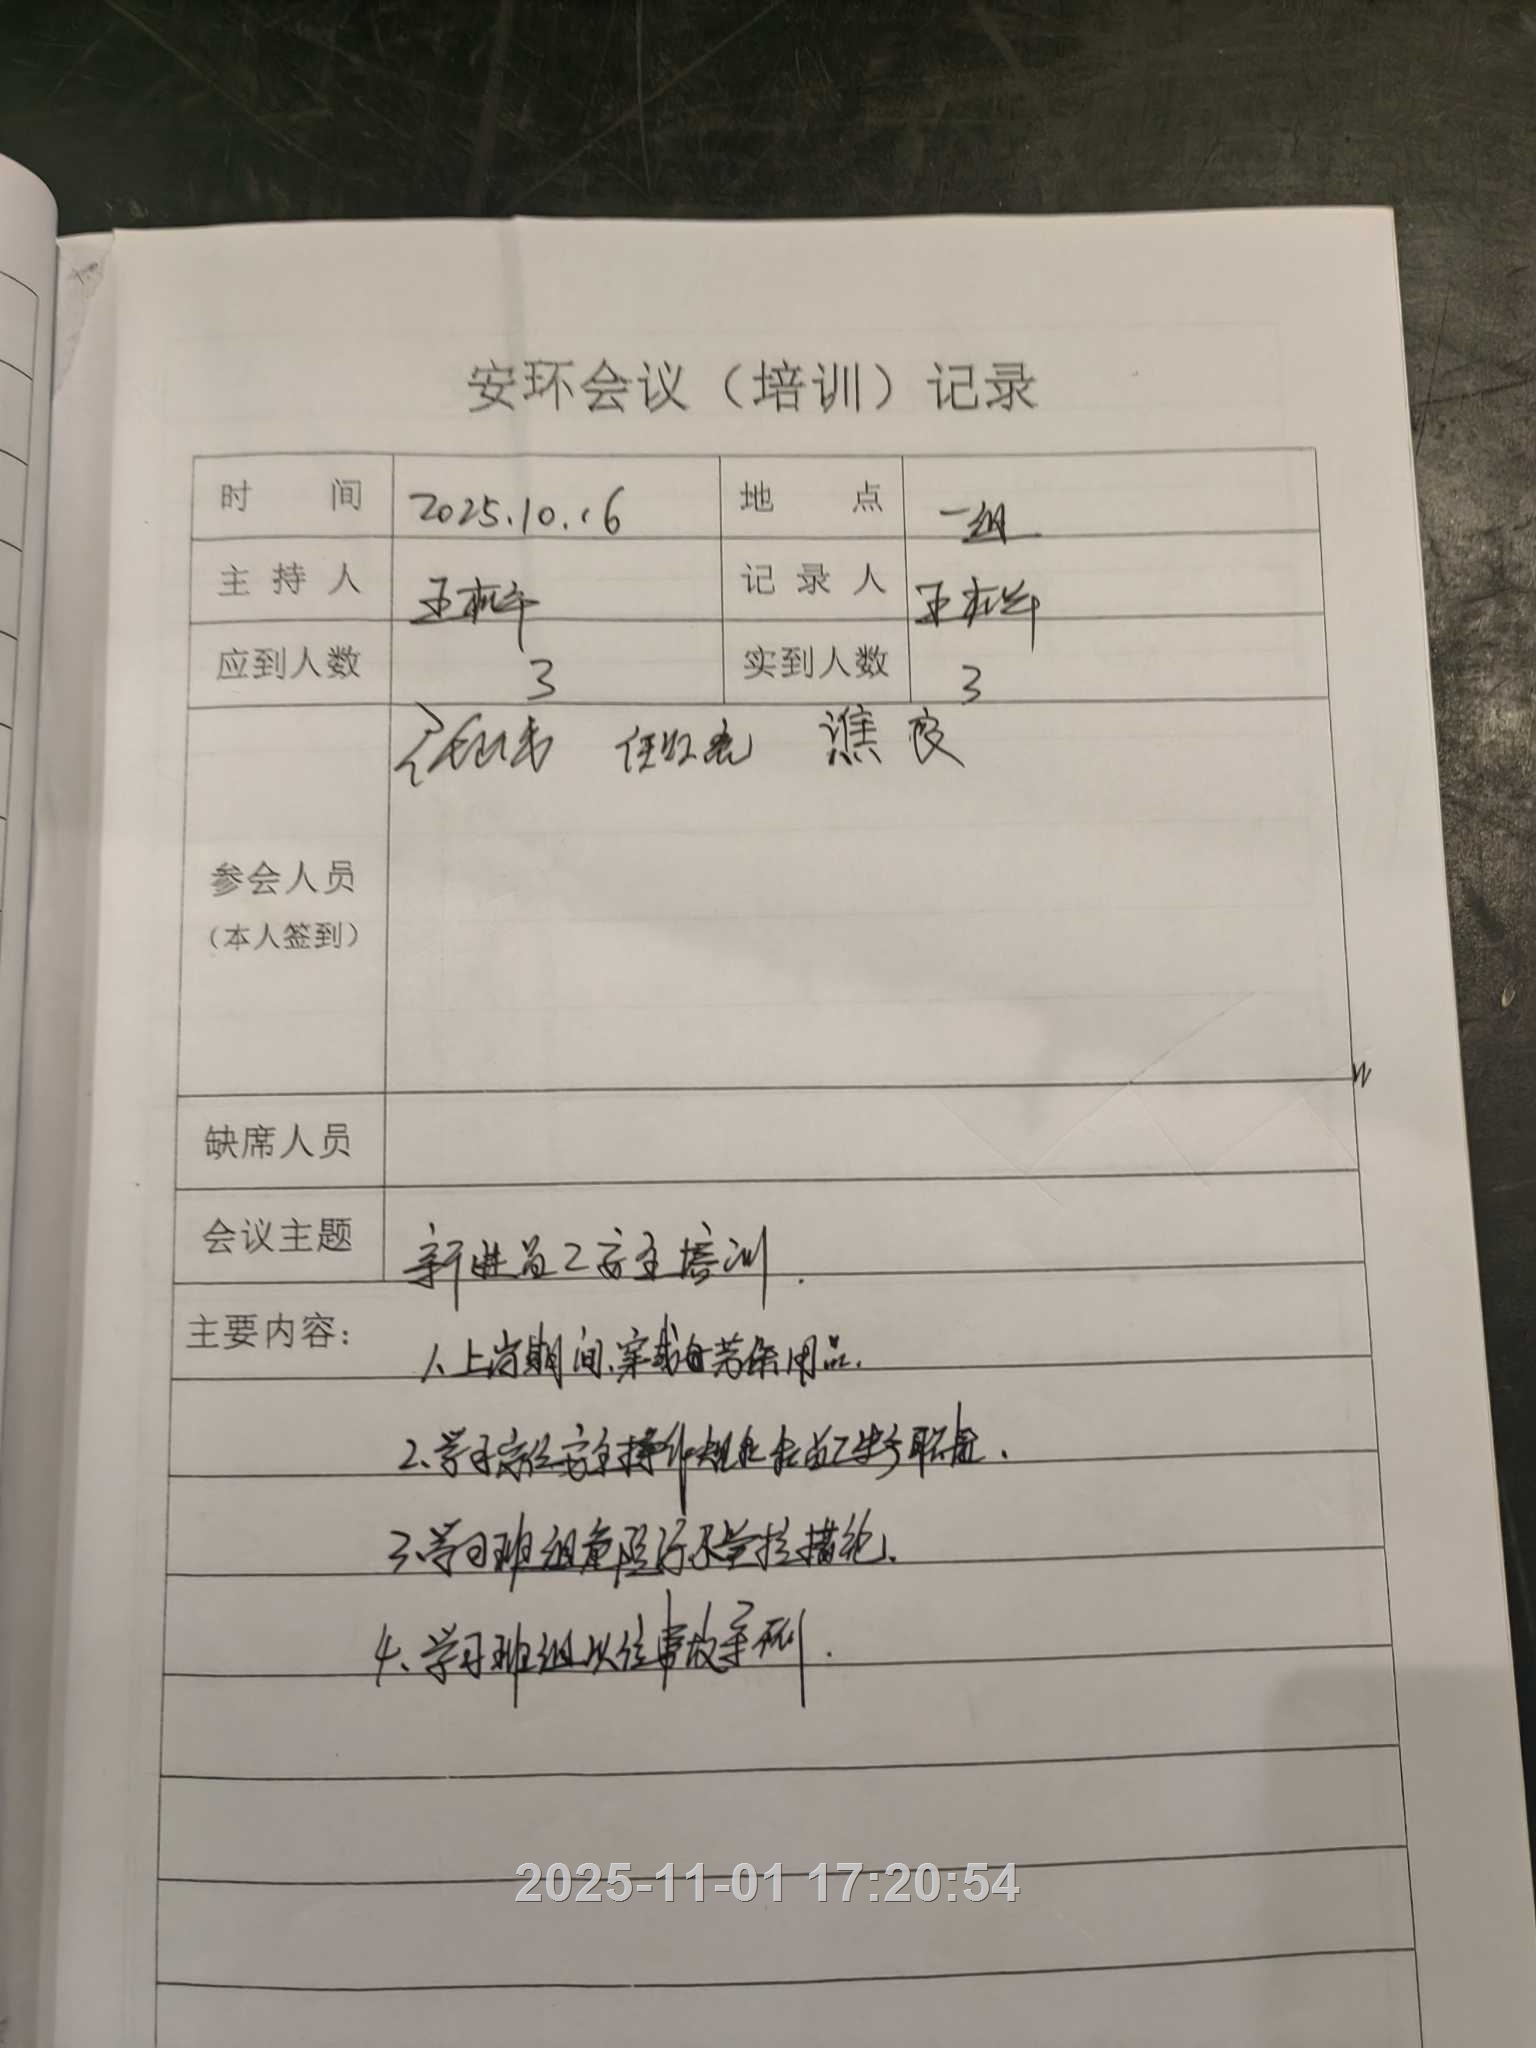 安环会议（培训）记录
时 间 2025.10.16 地 点 一组
主 持 人 王 记 录 人 王
应到人数 3 实到人数 3
任红亮 谯良
参会人员
（本人签到）
缺席人员
会议主题 新进员工安全培训.
主要内容：
1、上岗期间、穿戴好劳保用品.
2、学习岗位安全操作规程
3、学习班组危险
4、学习班组以往事故案例.
2025-11-01 17:20:54